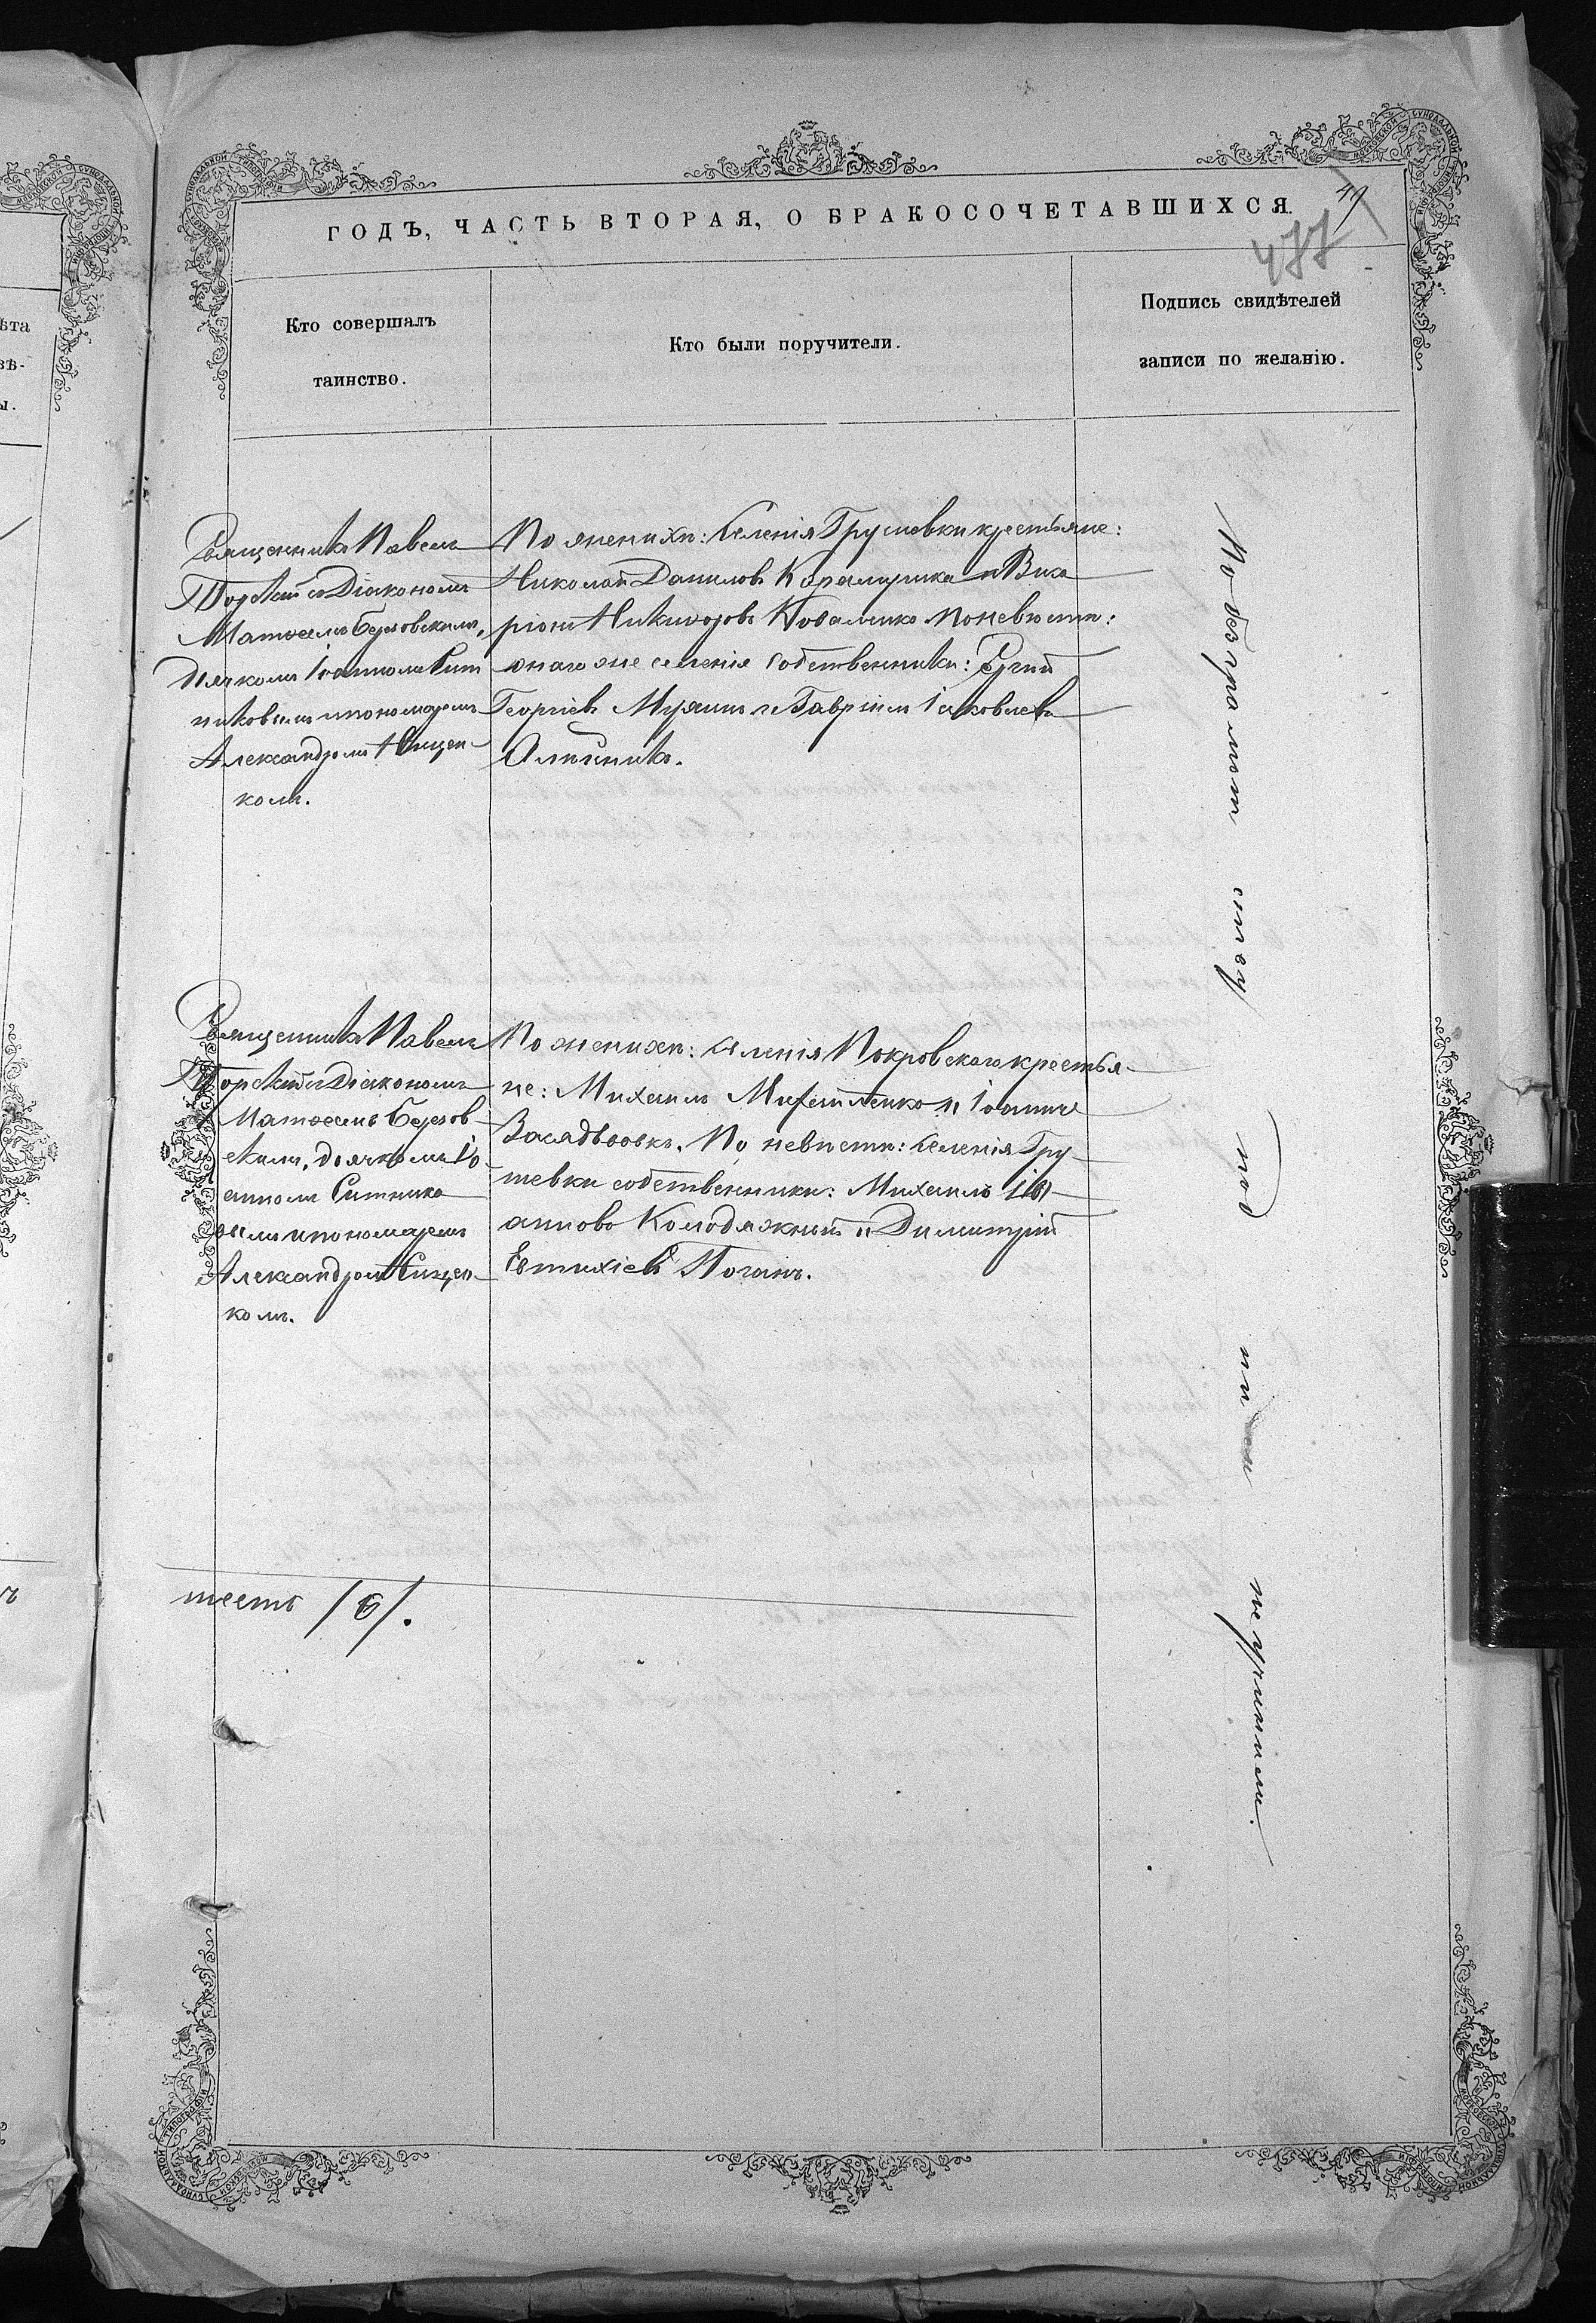 ГОДЪ, ЧАСТЬ ВТОРАЯ, О БРАКОСОЧЕТАВШИХСЯ.
49
477
Кто совершалъ
таинство.
Кто были поручители.
Подпись свидѣтелей
записи по желанію.
Священникъ Павелъ
Торскій съ Діакономъ
Матѳеемъ Березовскимъ,
дьячкомъ Іоанномъ Сит
никовымъ и пономаремъ
Александромъ Нищен-
комъ.
По женихѣ: Селенія Грушевки крестьяне:
Николай Даниловъ Карамушка и Вика
ріонъ Никифоровъ Коваленко По невѣстѣ:
онаго же селенія Собственники: Сергій
Георгіевъ Мужикъ и Гавріилъ Іаковлевъ
Олійникъ.
Священникъ Павелъ
Торскій съ Діакономъ
Матѳеемъ Березов-
скимъ, дьячкомъ Іо-
анномъ Ситнико
вымъ и пономаремъ
Александромъ Нищен-
комъ.
По женихѣ: Селенія Покровскаго крестья-
не: Михаилъ и Іоаннъ
По невѣстѣ: Селенія Гру-
шевки собственники: Михаилъ Іо-
анновъ Колодяжный и Димитрій
Евтихіевъ Поганъ.
шесть /6/.
По безграмотству под писи не учинили.
ѣта
вѣ-
ы.